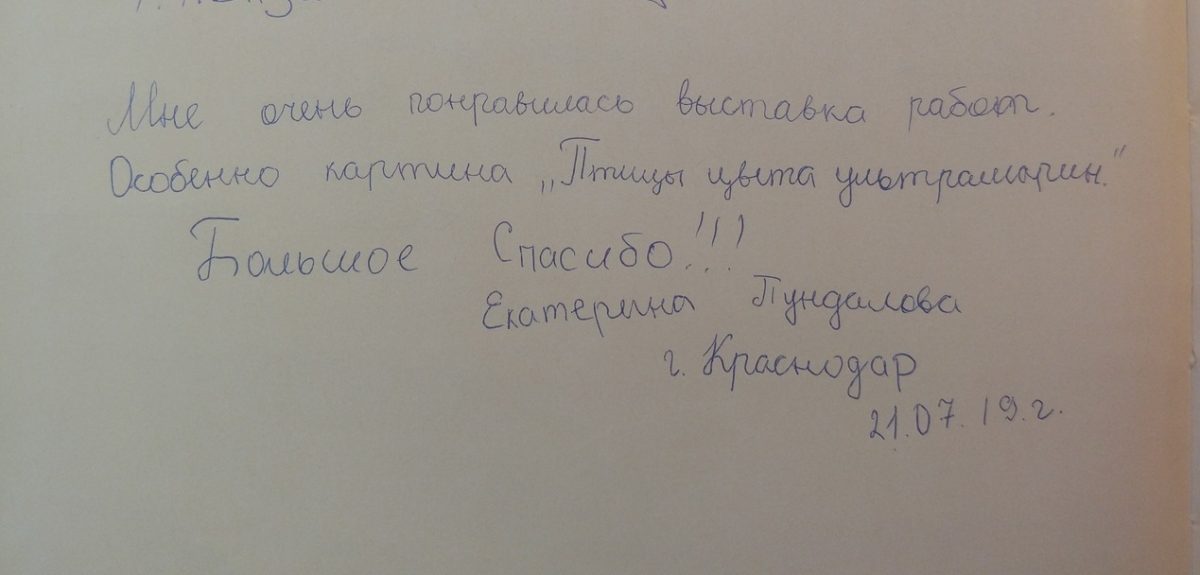 Мне очень понравилась выставка работ.
Особенно картина „Птицы цвета ультрамарин."
Большое Спасибо!!!
Екатерина Пундалова
г. Краснодар
21.07.19.г.